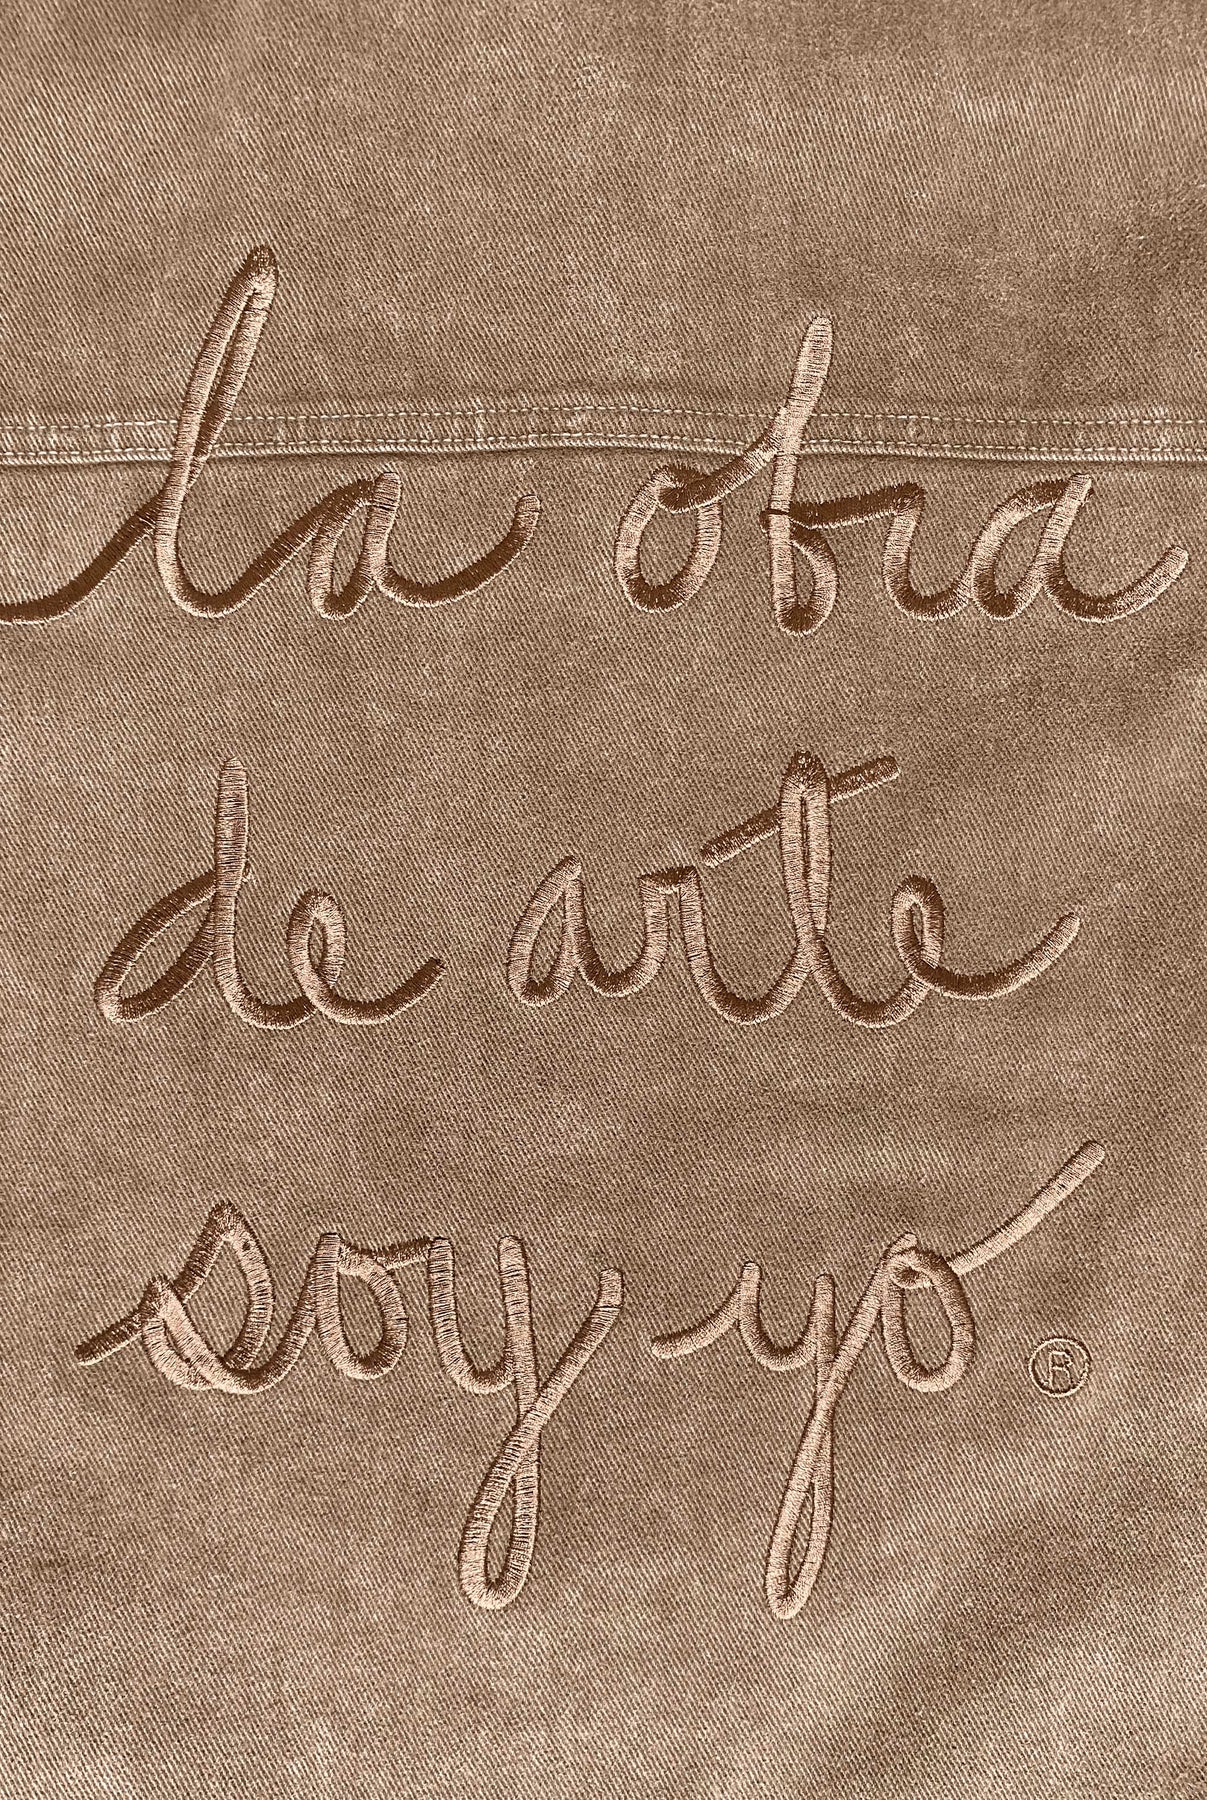 la obra
de arte
soy yo ®